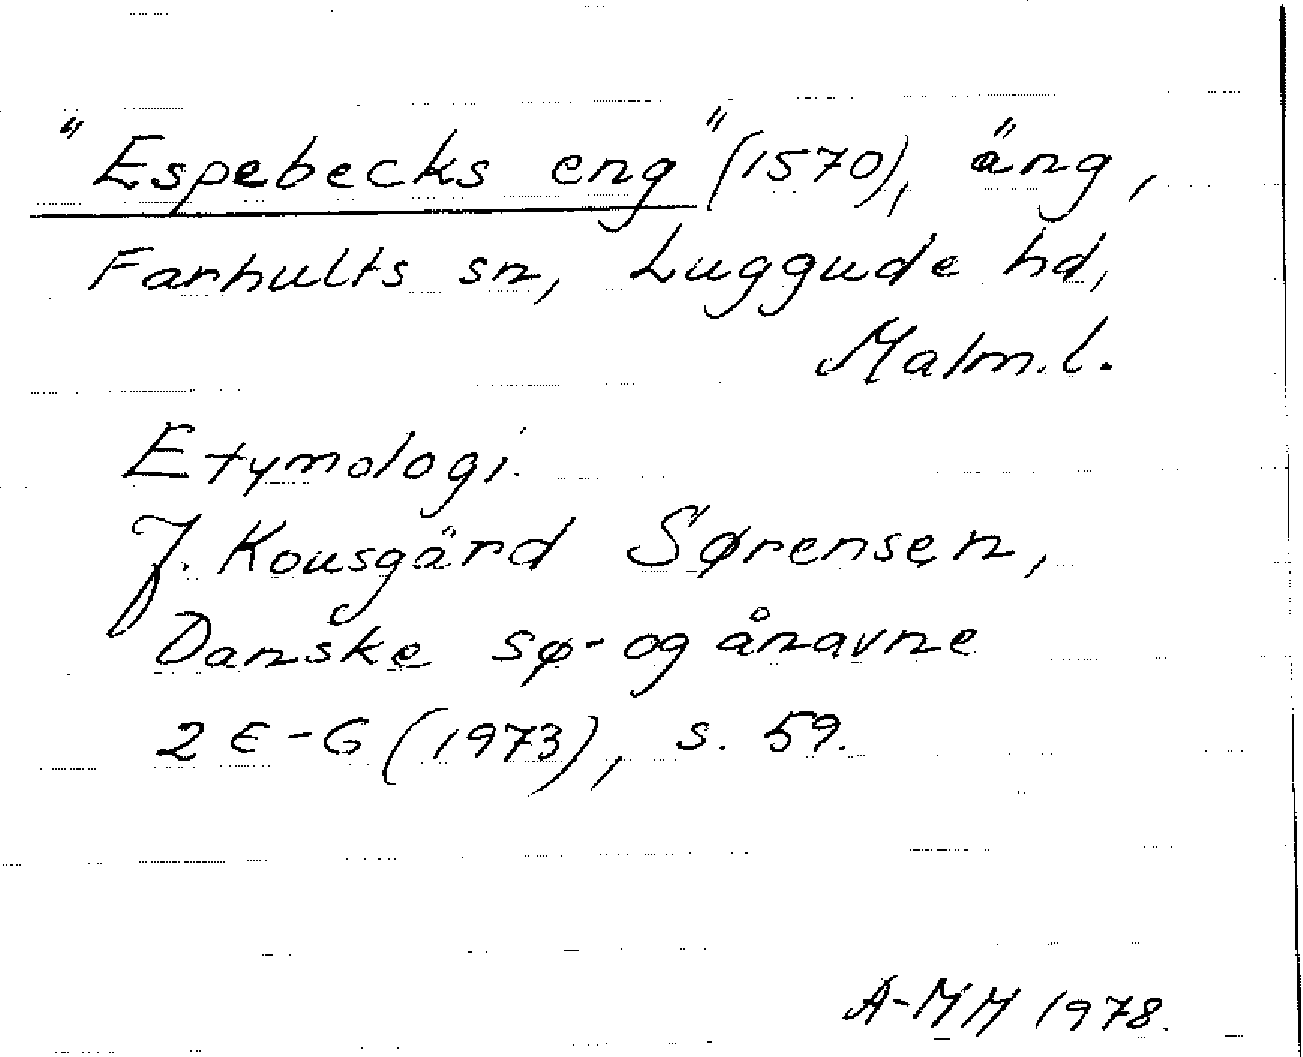 "Espebecks eng" (1570), äng,
Farhults sn, Luggude hd,
Malm.l.
Etymologi.
J. Kousgärd Sørensen,
Danske sø- og ånavne
2 E-G (1973), s. 59.
A-MM 1978.